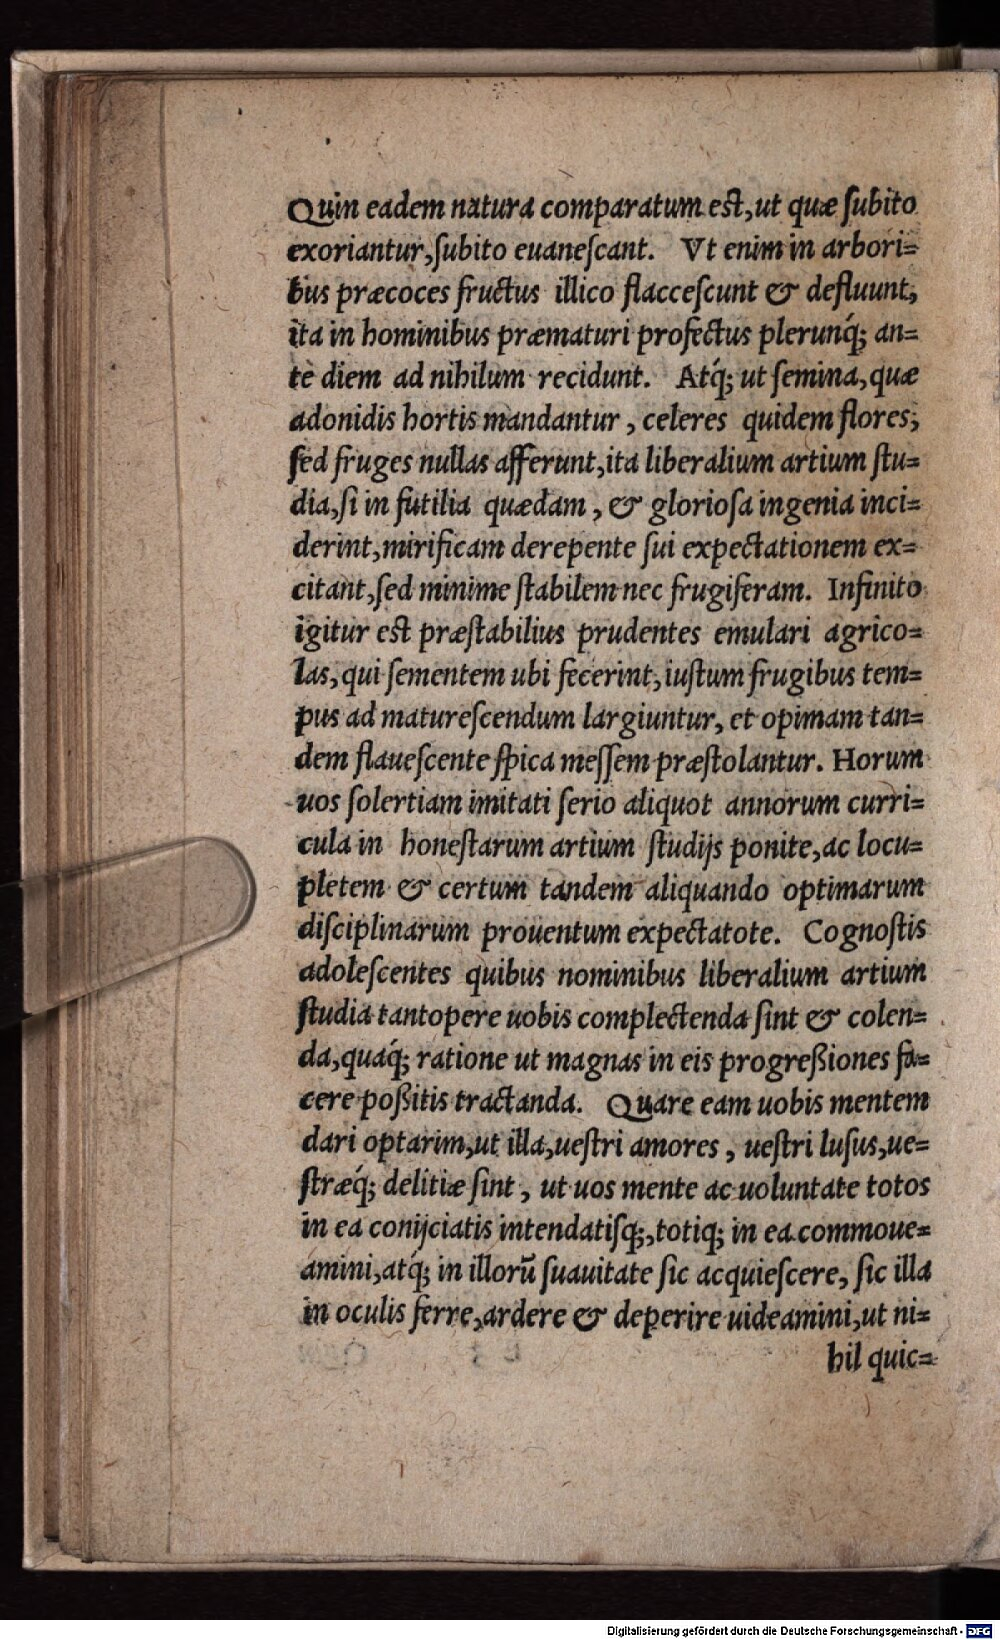 Quin eadem natura comparatum est, ut quæ ſubito
exoriantur, ſubito euaneſcant. Vt enim in arbori=
bus præcoces fructus illico flacceſcunt & defluunt,
ita in hominibus præmaturi profectus plerunq́; an=
te diem ad nihilum recidunt. Atq́; ut ſemina, quæ
adonidis hortis mandantur, celeres quidem flores,
ſed fruges nullas afferunt, ita liberalium artium ſtu=
dia, ſi in futilia quædam, & glorioſa ingenia inci=
derint, mirificam derepente ſui expectationem ex=
citant, ſed minime ſtabilem nec frugiferam. Infinito
igitur est præſtabilius prudentes emulari agrico=
las, qui ſementem ubi fecerint, iuſtum frugibus tem=
pus ad matureſcendum largiuntur, et opimam tan=
dem flaueſcente ſpica meſſem præſtolantur. Horum
uos ſolertiam imitati ſerio aliquot annorum curri=
cula in honeſtarum artium ſtudijs ponite, ac locu=
pletem & certum tandem aliquando optimarum
diſciplinarum prouentum expectatote. Cognoſtis
adoleſcentes quibus nominibus liberalium artium
ſtudia tantopere uobis complectenda ſint & colen=
da, quaq́; ratione ut magnas in eis progreßiones fa=
cere poßitis tractanda. Quare eam uobis mentem
dari optarim, ut illa, ueſtri amores, ueſtri luſus, ue=
ſtræq́; delitiæ ſint, ut uos mente ac uoluntate totos
in ea conijciatis intendatiſq;, totiq; in ea commoue=
amini, atq́; in illorū ſuauitate ſic acquieſcere, ſic illa
in oculis ferre, ardere & deperire uideamini, ut ni=
hil quic=
Digitalisierung gefördert durch die Deutsche Forschungsgemeinschaft - DFG